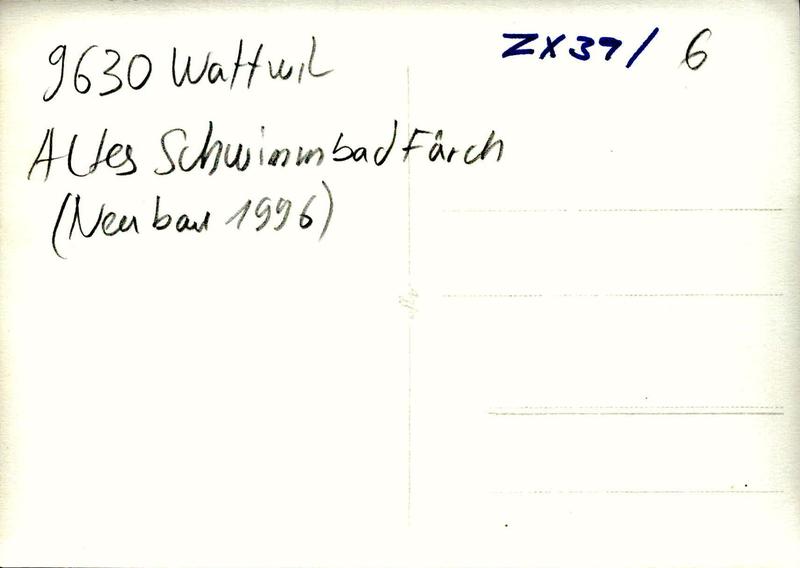 9630 Wattwil
ZX39/ 6
Altes Schwimmbad Färch
(Neubau 1996)